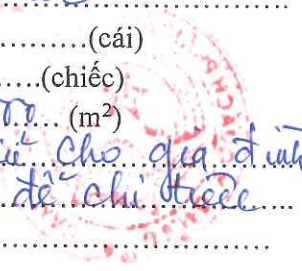 ..............(cái)
......(chiếc)
.... (m²)
cho gia đình
để chi tiêu